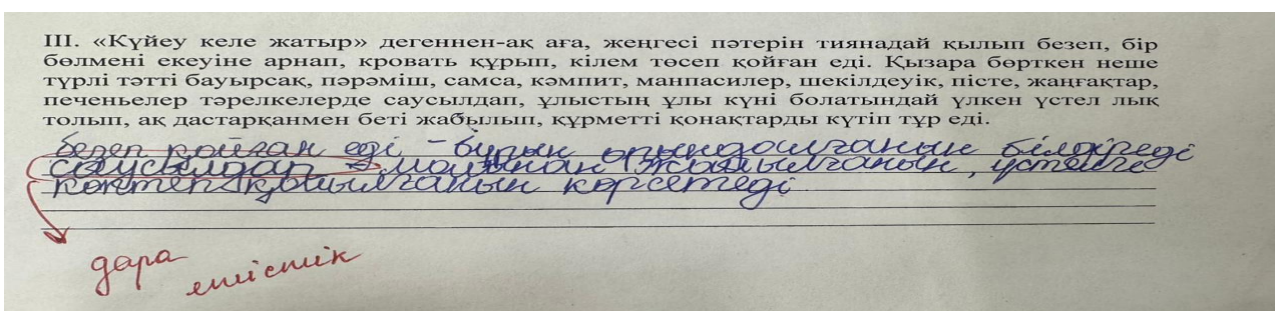 III. «Күйеу келе жатыр» дегеннен-ақ аға, жеңгесі пәтерін тиянадай қылып безеп, бір
бөлмені екеуіне арнап, кровать құрып, кілем төсеп қойған еді. Қызара бөрткен неше
түрлі тәтті бауырсақ, пәрәміш, самса, кәмпит, манпасилер, шекілдеуік, пісте, жаңғақтар,
печеньелер тәрелкелерде саусылдап, ұлыстың ұлы күні болатындай үлкен үстел лық
толып, ақ дастарқанмен беті жабылып, құрметті қонақтарды күтіп тұр еді.
безеп қойған еді - бұрын орындалғанын білдіреді
саусылдап - молынан жайылғанын, үстелге
көптеп қойылғанын көрсетеді
дара
етістік